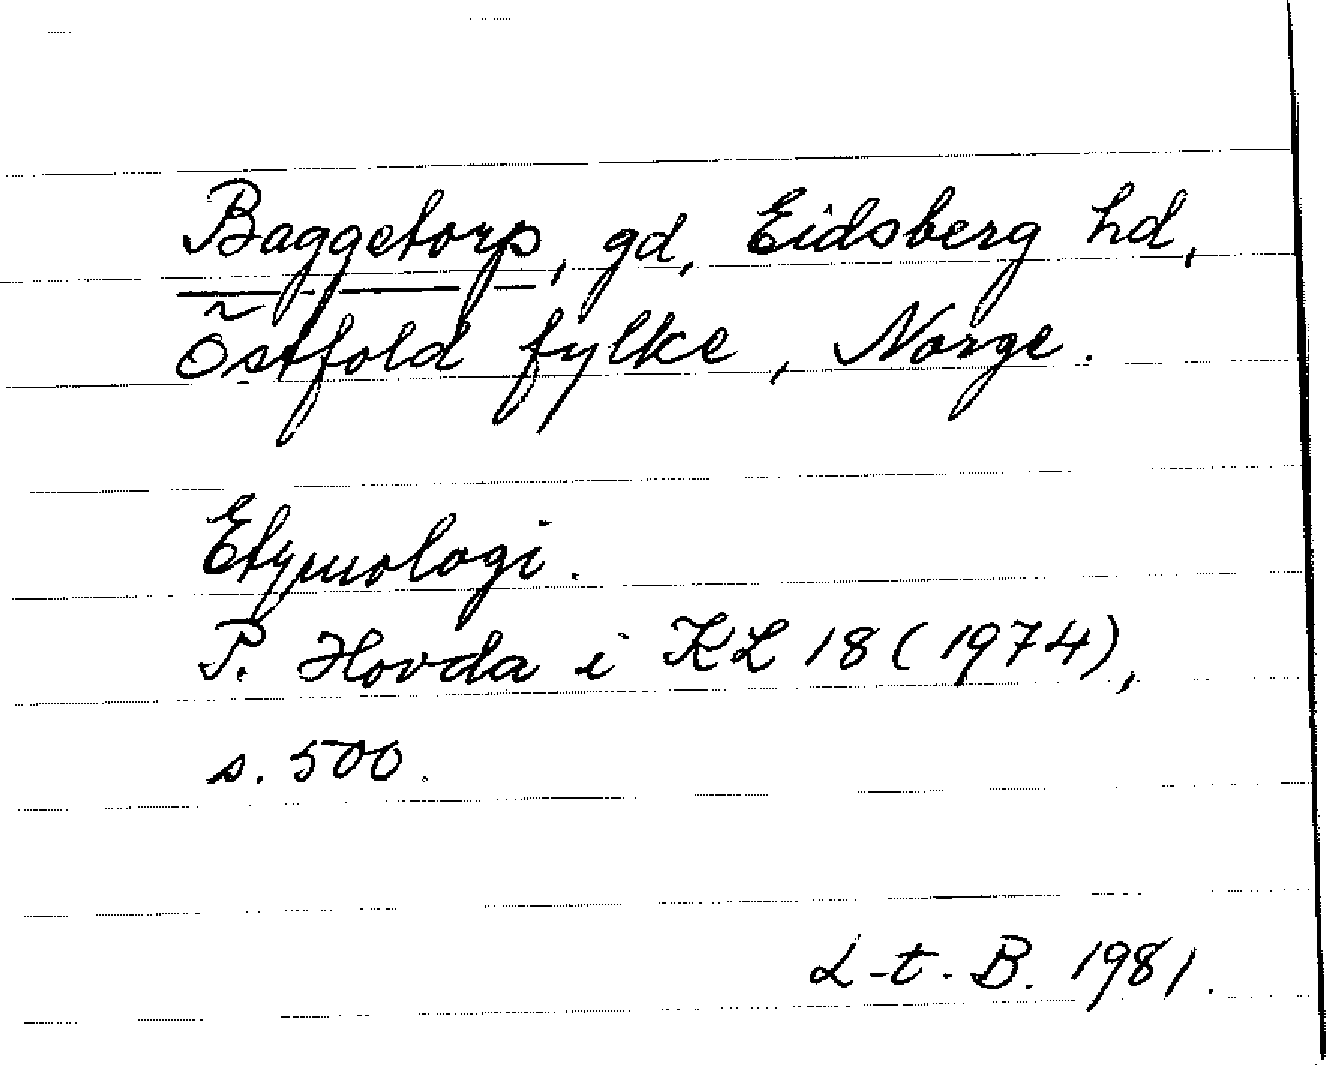 Baggetorp, gd, Eidsberg hd,
Östfold fylke, Norge.
Etymologi.
P. Hovda i KL 18 (1974),
s. 500.
L-t. B. 1981.